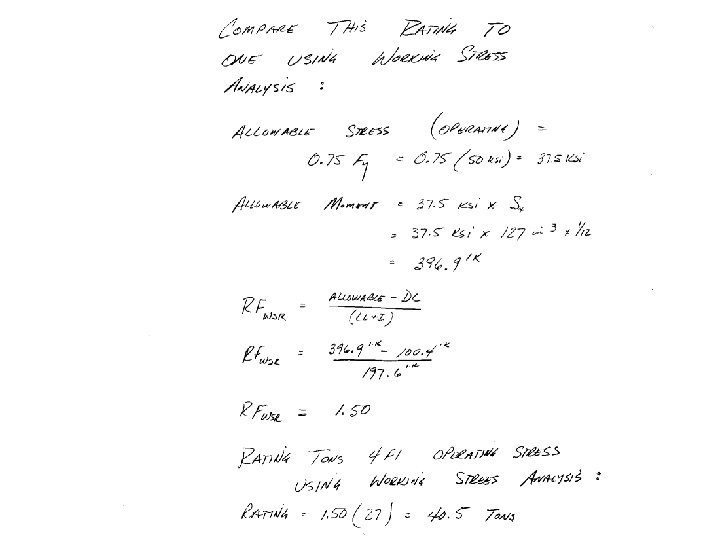 COMPARE THIS RATING TO
ONE USING WORKING STRESS
ANALYSIS :
ALLOWABLE STRESS (OPERATING) =
0.75 Fy = 0.75 (50 ksi) = 37.5 KSi
ALLOWABLE MOMENT = 37.5 KSi x Sx
= 37.5 KSi x 127 in3 x 1/12
= 396.9 'K
RF WSR = ALLOWABLE - DL / (LL+I)
RF WSR = 396.9 'K - 100.4 'K / 197.6 'K
RF WSR = 1.50
RATING TONS @ OPERATING STRESS
USING WORKING STRESS ANALYSIS :
RATING = 1.50 (27) = 40.5 TONS